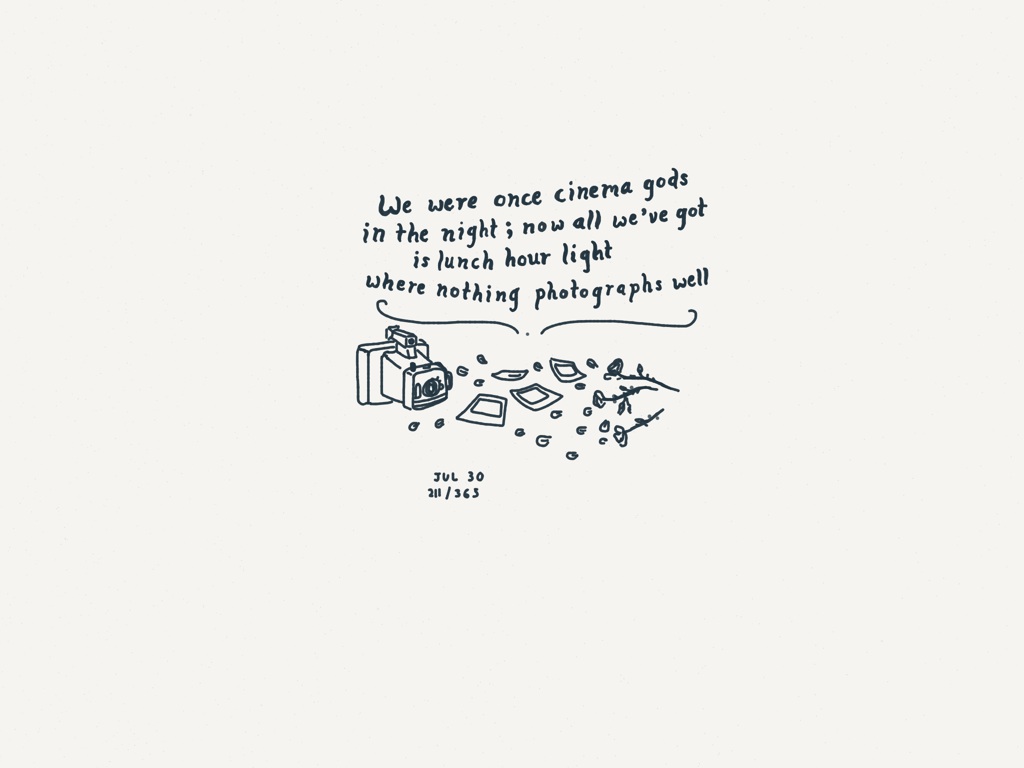 We were once cinema gods
in the night; now all we've got
is lunch hour light
where nothing photographs well
JUL 30
211/365